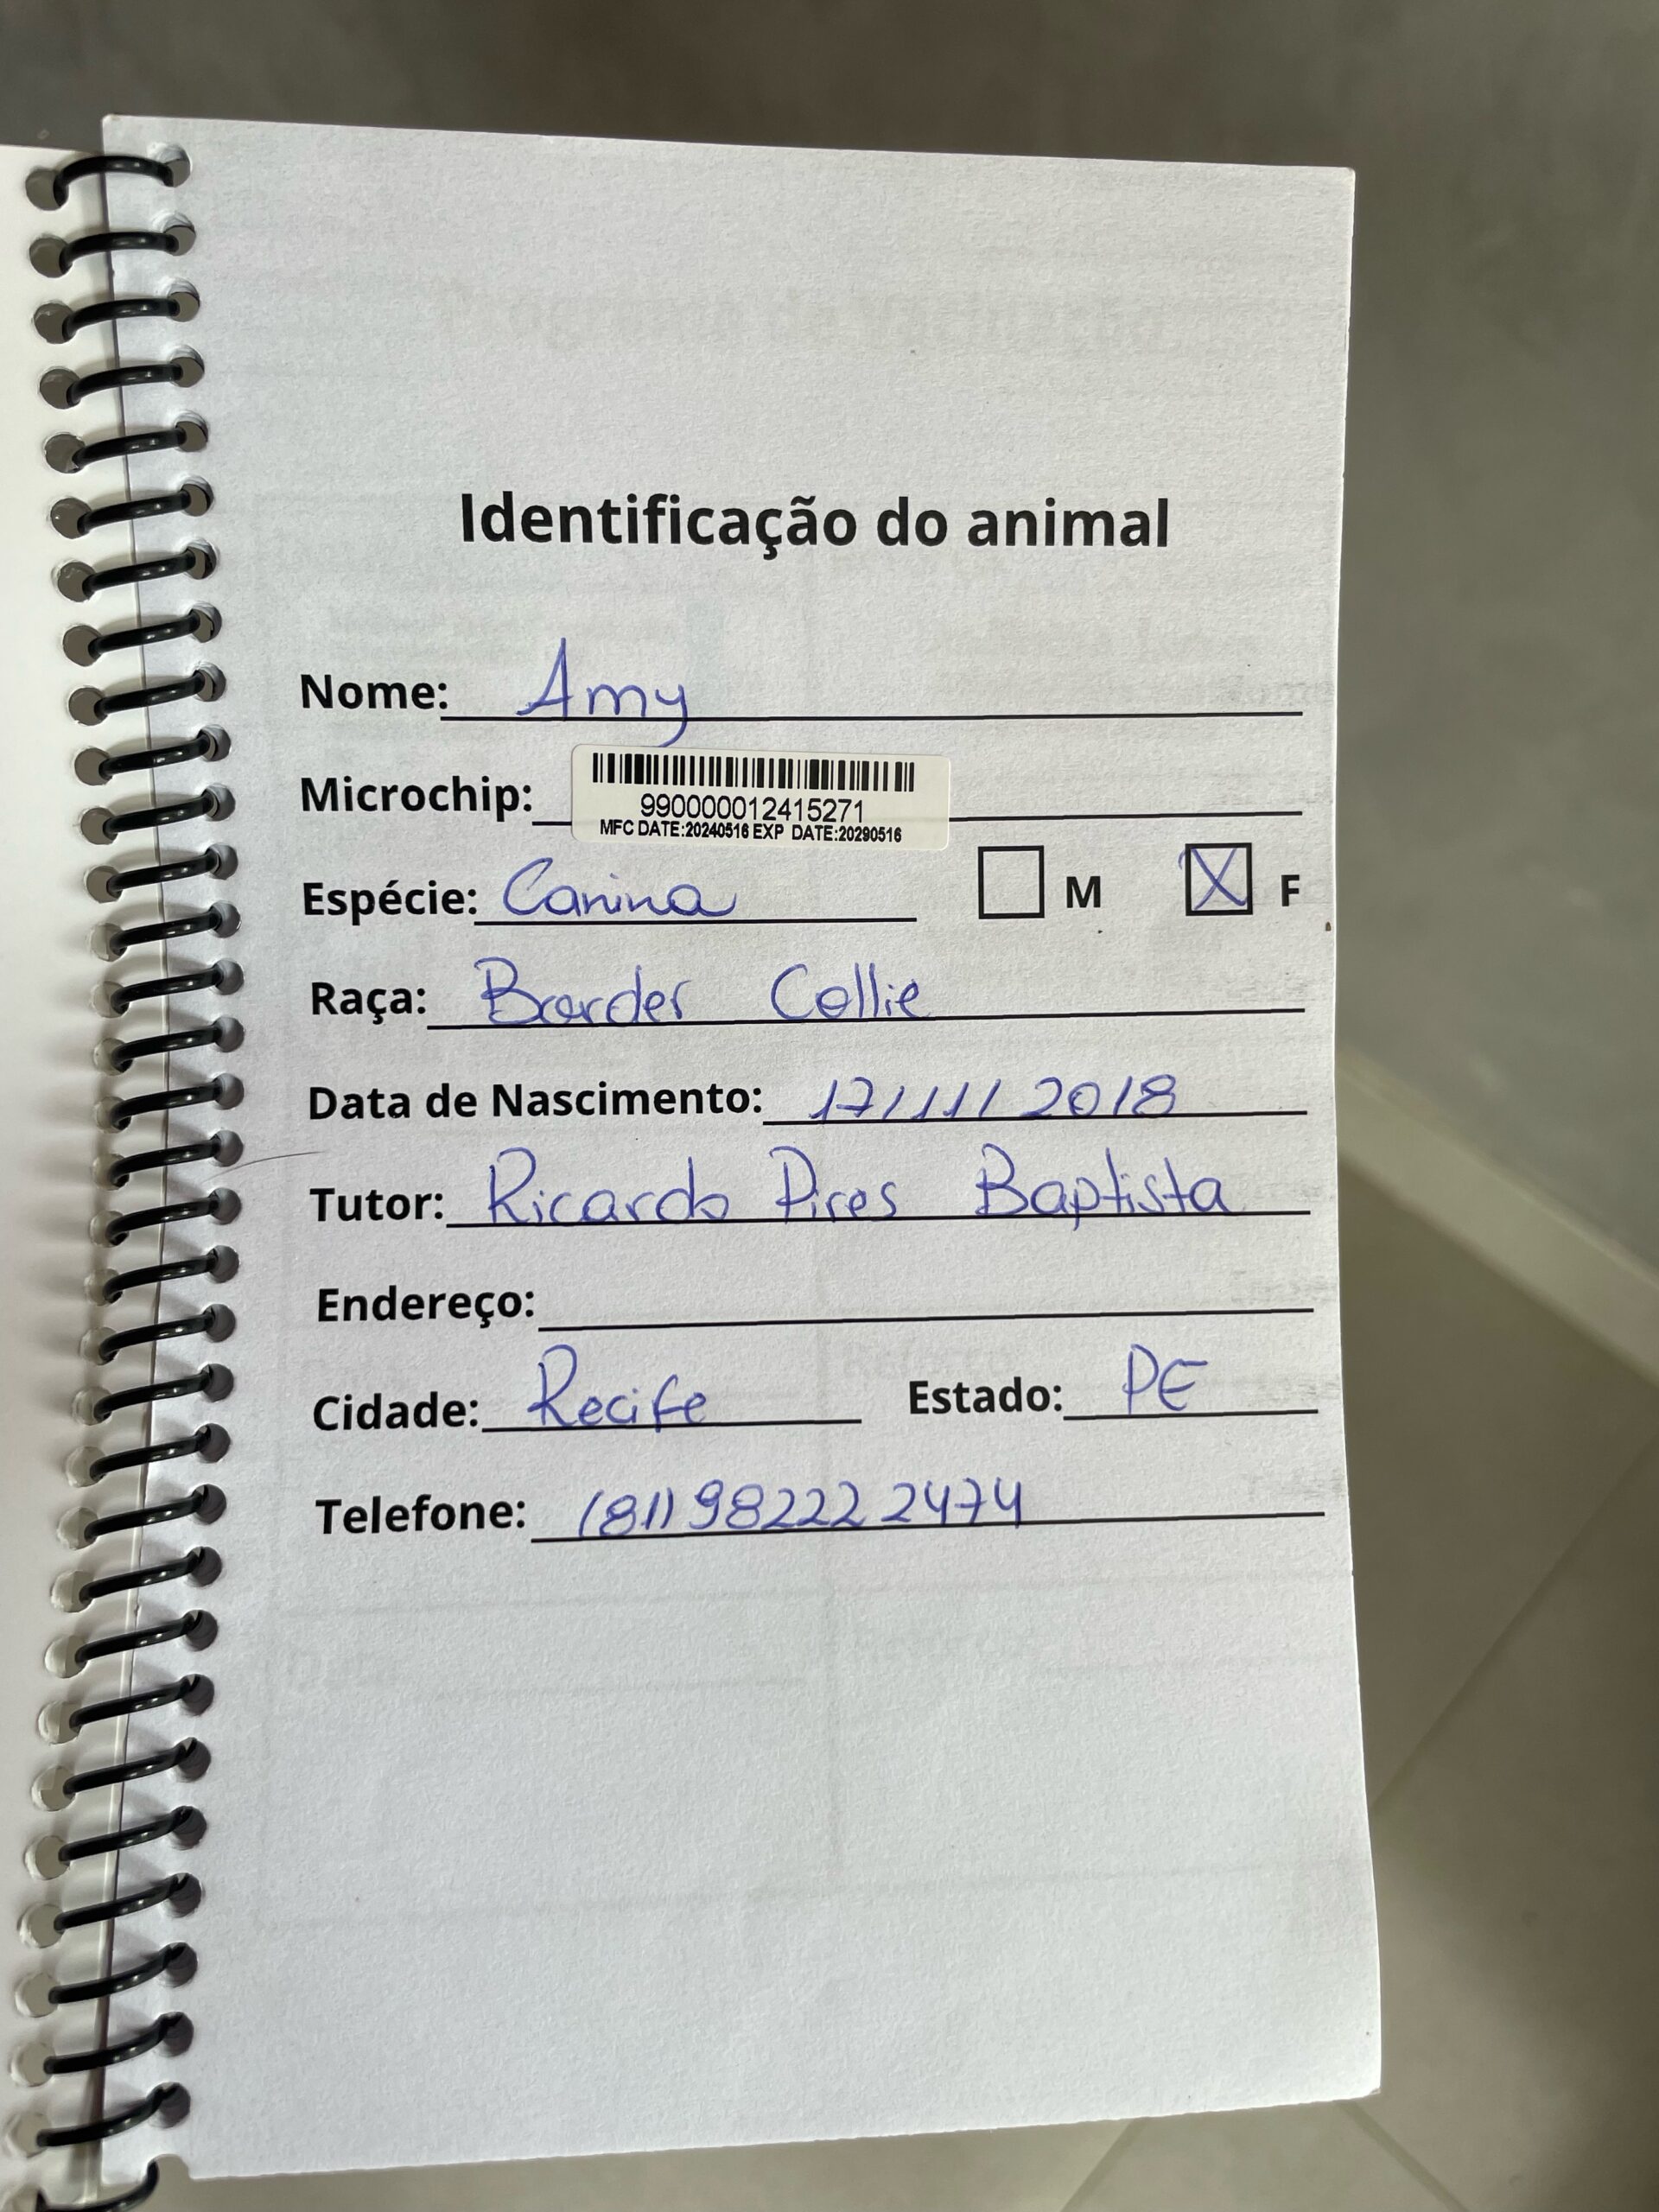 Identificação do animal
Nome: Amy
Microchip: 990000012415271
MFC DATE:20240516 EXP DATE:20290516
Espécie: Canina M X F
Raça: Border Collie
Data de Nascimento: 17/11/2018
Tutor: Ricardo Pires Baptista
Endereço:
Cidade: Recife Estado: PE
Telefone: (81) 98222 2474